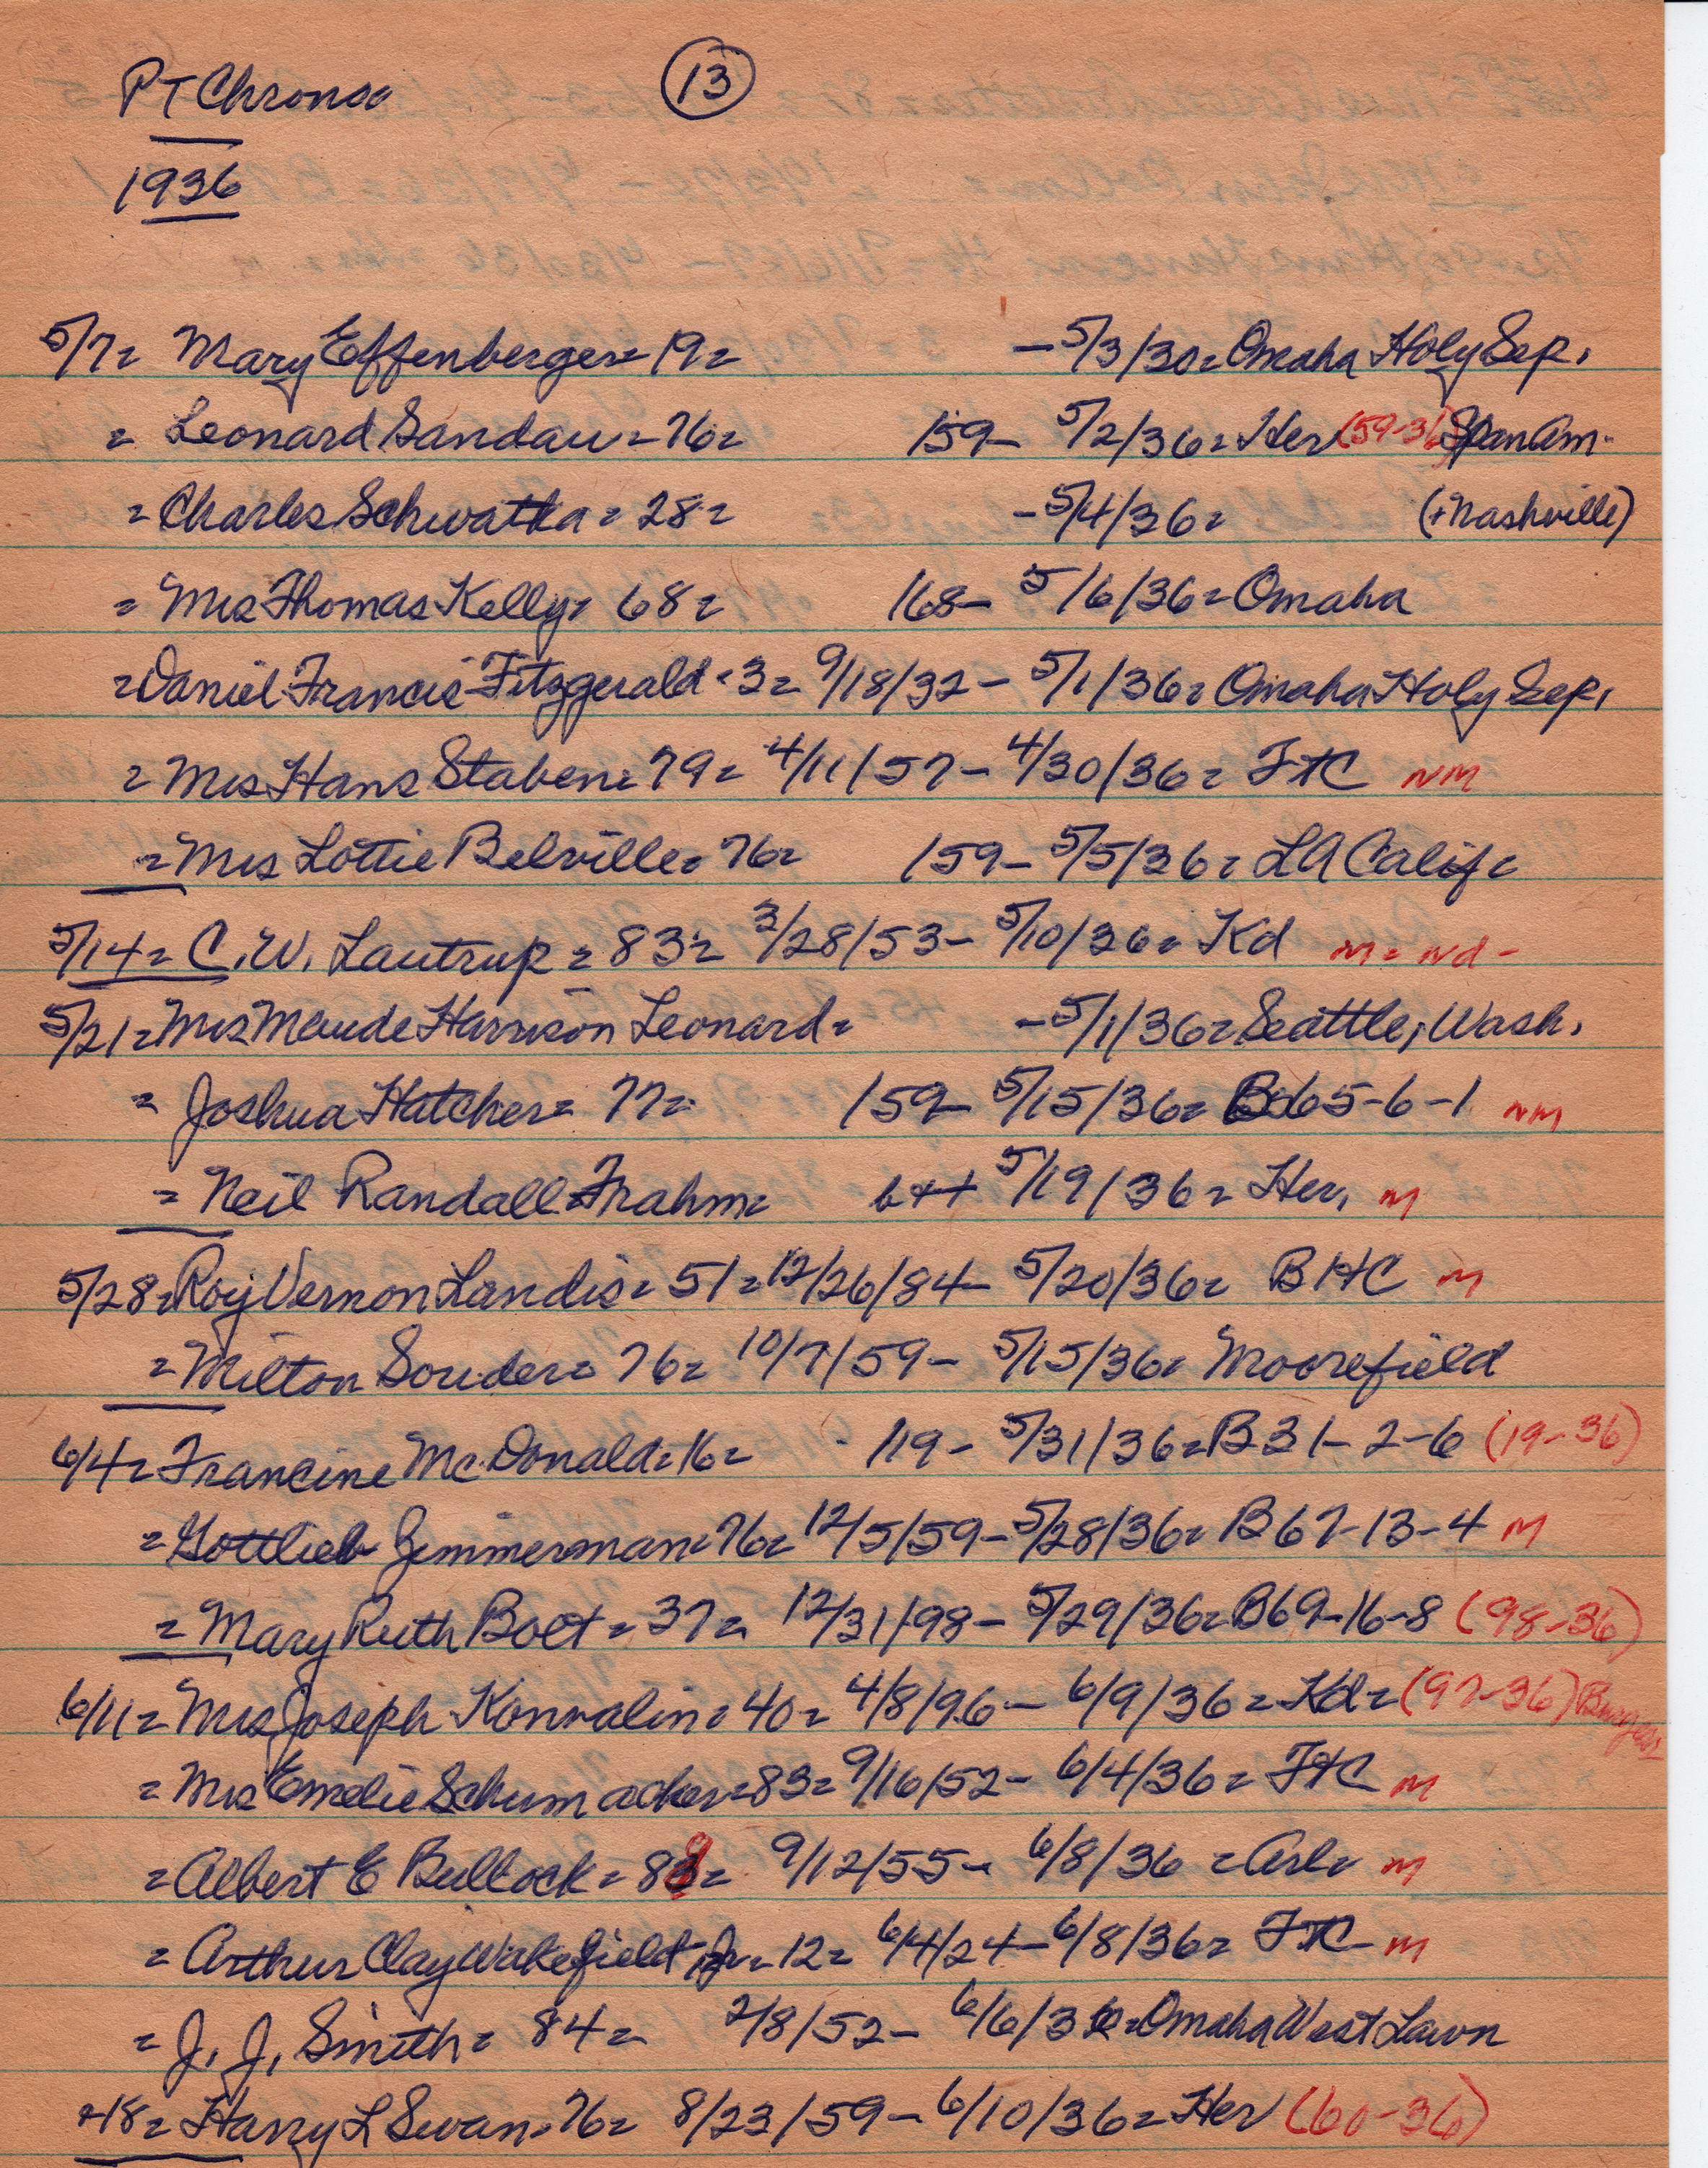 PT Chrono (13)
1936
5/7= Mary Effenberger= 19= -5/3/30= Omaha Holy Sep.
= Leonard Sandau= 76= 159- 5/2/36= Her (59-36) SpanAm.
= Charles Schwatka= 28= -5/4/36= (+Nashville)
= Mrs Thomas Kelly= 68= 168- 5/6/36= Omaha
=Daniel Francis Fitzgerald=3= 9/18/32- 5/1/36= Omaha Holy Sep.
= Mrs Hans Staben= 79= 4/11/57- 4/30/36= FtC NM
= Mrs Lottie Belville= 76= 159- 5/5/36= LA Calif=
5/14= C. W. Lautrup= 83= 3/28/53- 5/10/36= Kd M= Nd-
5/21= Mrs Maude Harrison Leonard= -5/1/36= Seattle, Wash.
= Joshua Hatcher= 77= 159- 5/15/36= B65-6-1 NM
= Neil Randall Frahm= b++ 5/19/36= Her. M
5/28= Roy Vernon Landis= 51= 12/26/84- 5/20/36= BHC M
= Milton Souder= 76= 10/7/59- 5/15/36= Moorefield
6/4= Francine McDonald=16= 119- 5/31/36= B31-2-6 (19-36)
= Gottlieb Zimmerman=76= 12/5/59-5/28/36= B67-13-4 M
= Mary Ruth Bolt= 37= 12/31/98- 5/29/36= B69-16-8 (98-36)
6/11= Mrs Joseph Konvalin= 40= 4/8/96- 6/9/36= Kd= (97-36)
= Mrs Emelie Schumacher=83= 9/16/52- 6/4/36= FtC M
= Albert E Bullock= 8 = 9/12/55- 6/8/36 =Arl= M
= Arthur Clay Wakefield Jr= 12= 6/4/24-6/8/36= FtC M
= J. J. Smith= 84= 2/8/52- 6/6/36=Omaha West Lawn
+18= Harry L Swan= 76= 8/23/59- 6/10/36= Her (60-36)